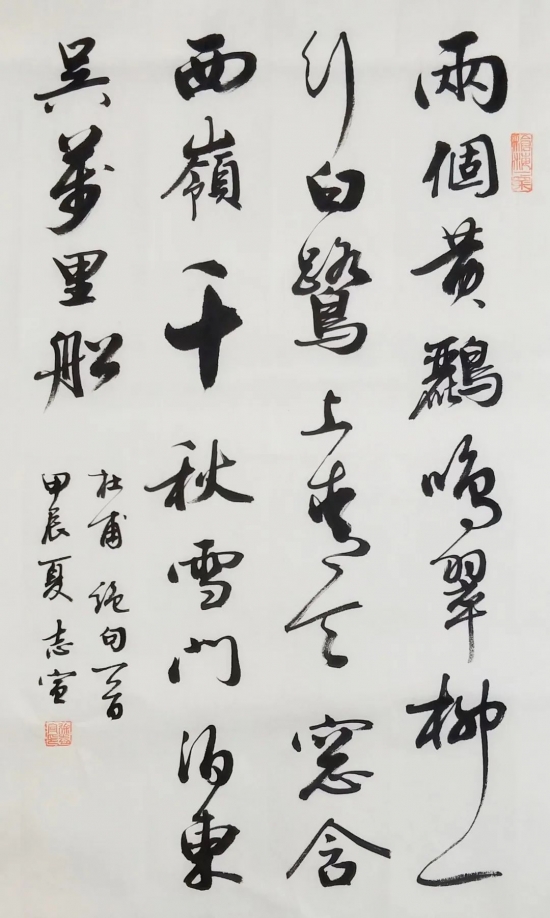 兩個黃鸝鳴翠柳一
行白鷺上青天窓含
西嶺千秋雪門泊東
吳萬里船
杜甫絕句一首
甲辰夏志宣